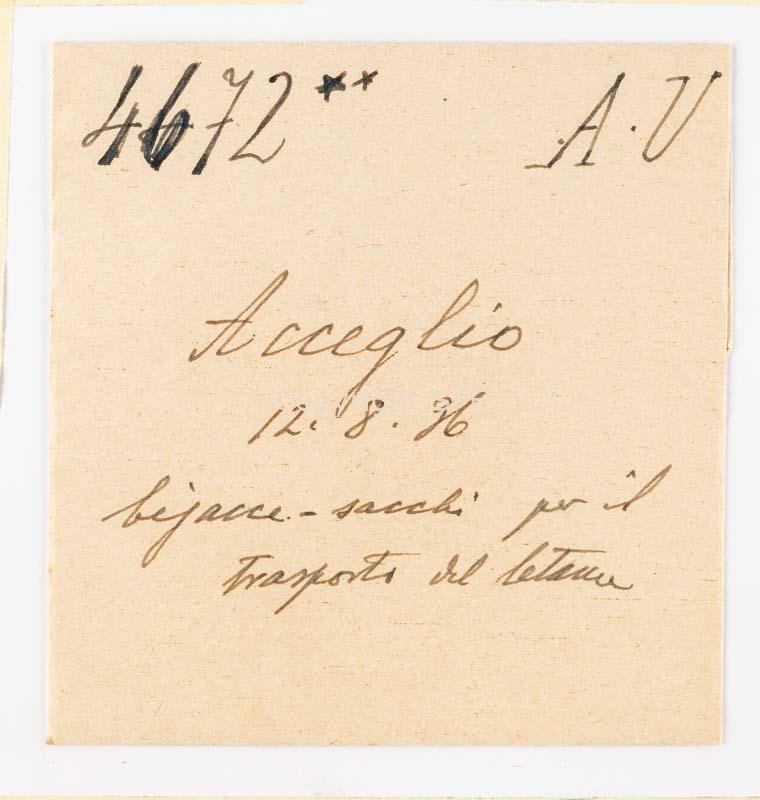 4672** A.V
Acceglio
12.8.36
bisacce - sacchi per il
trasporto del letame